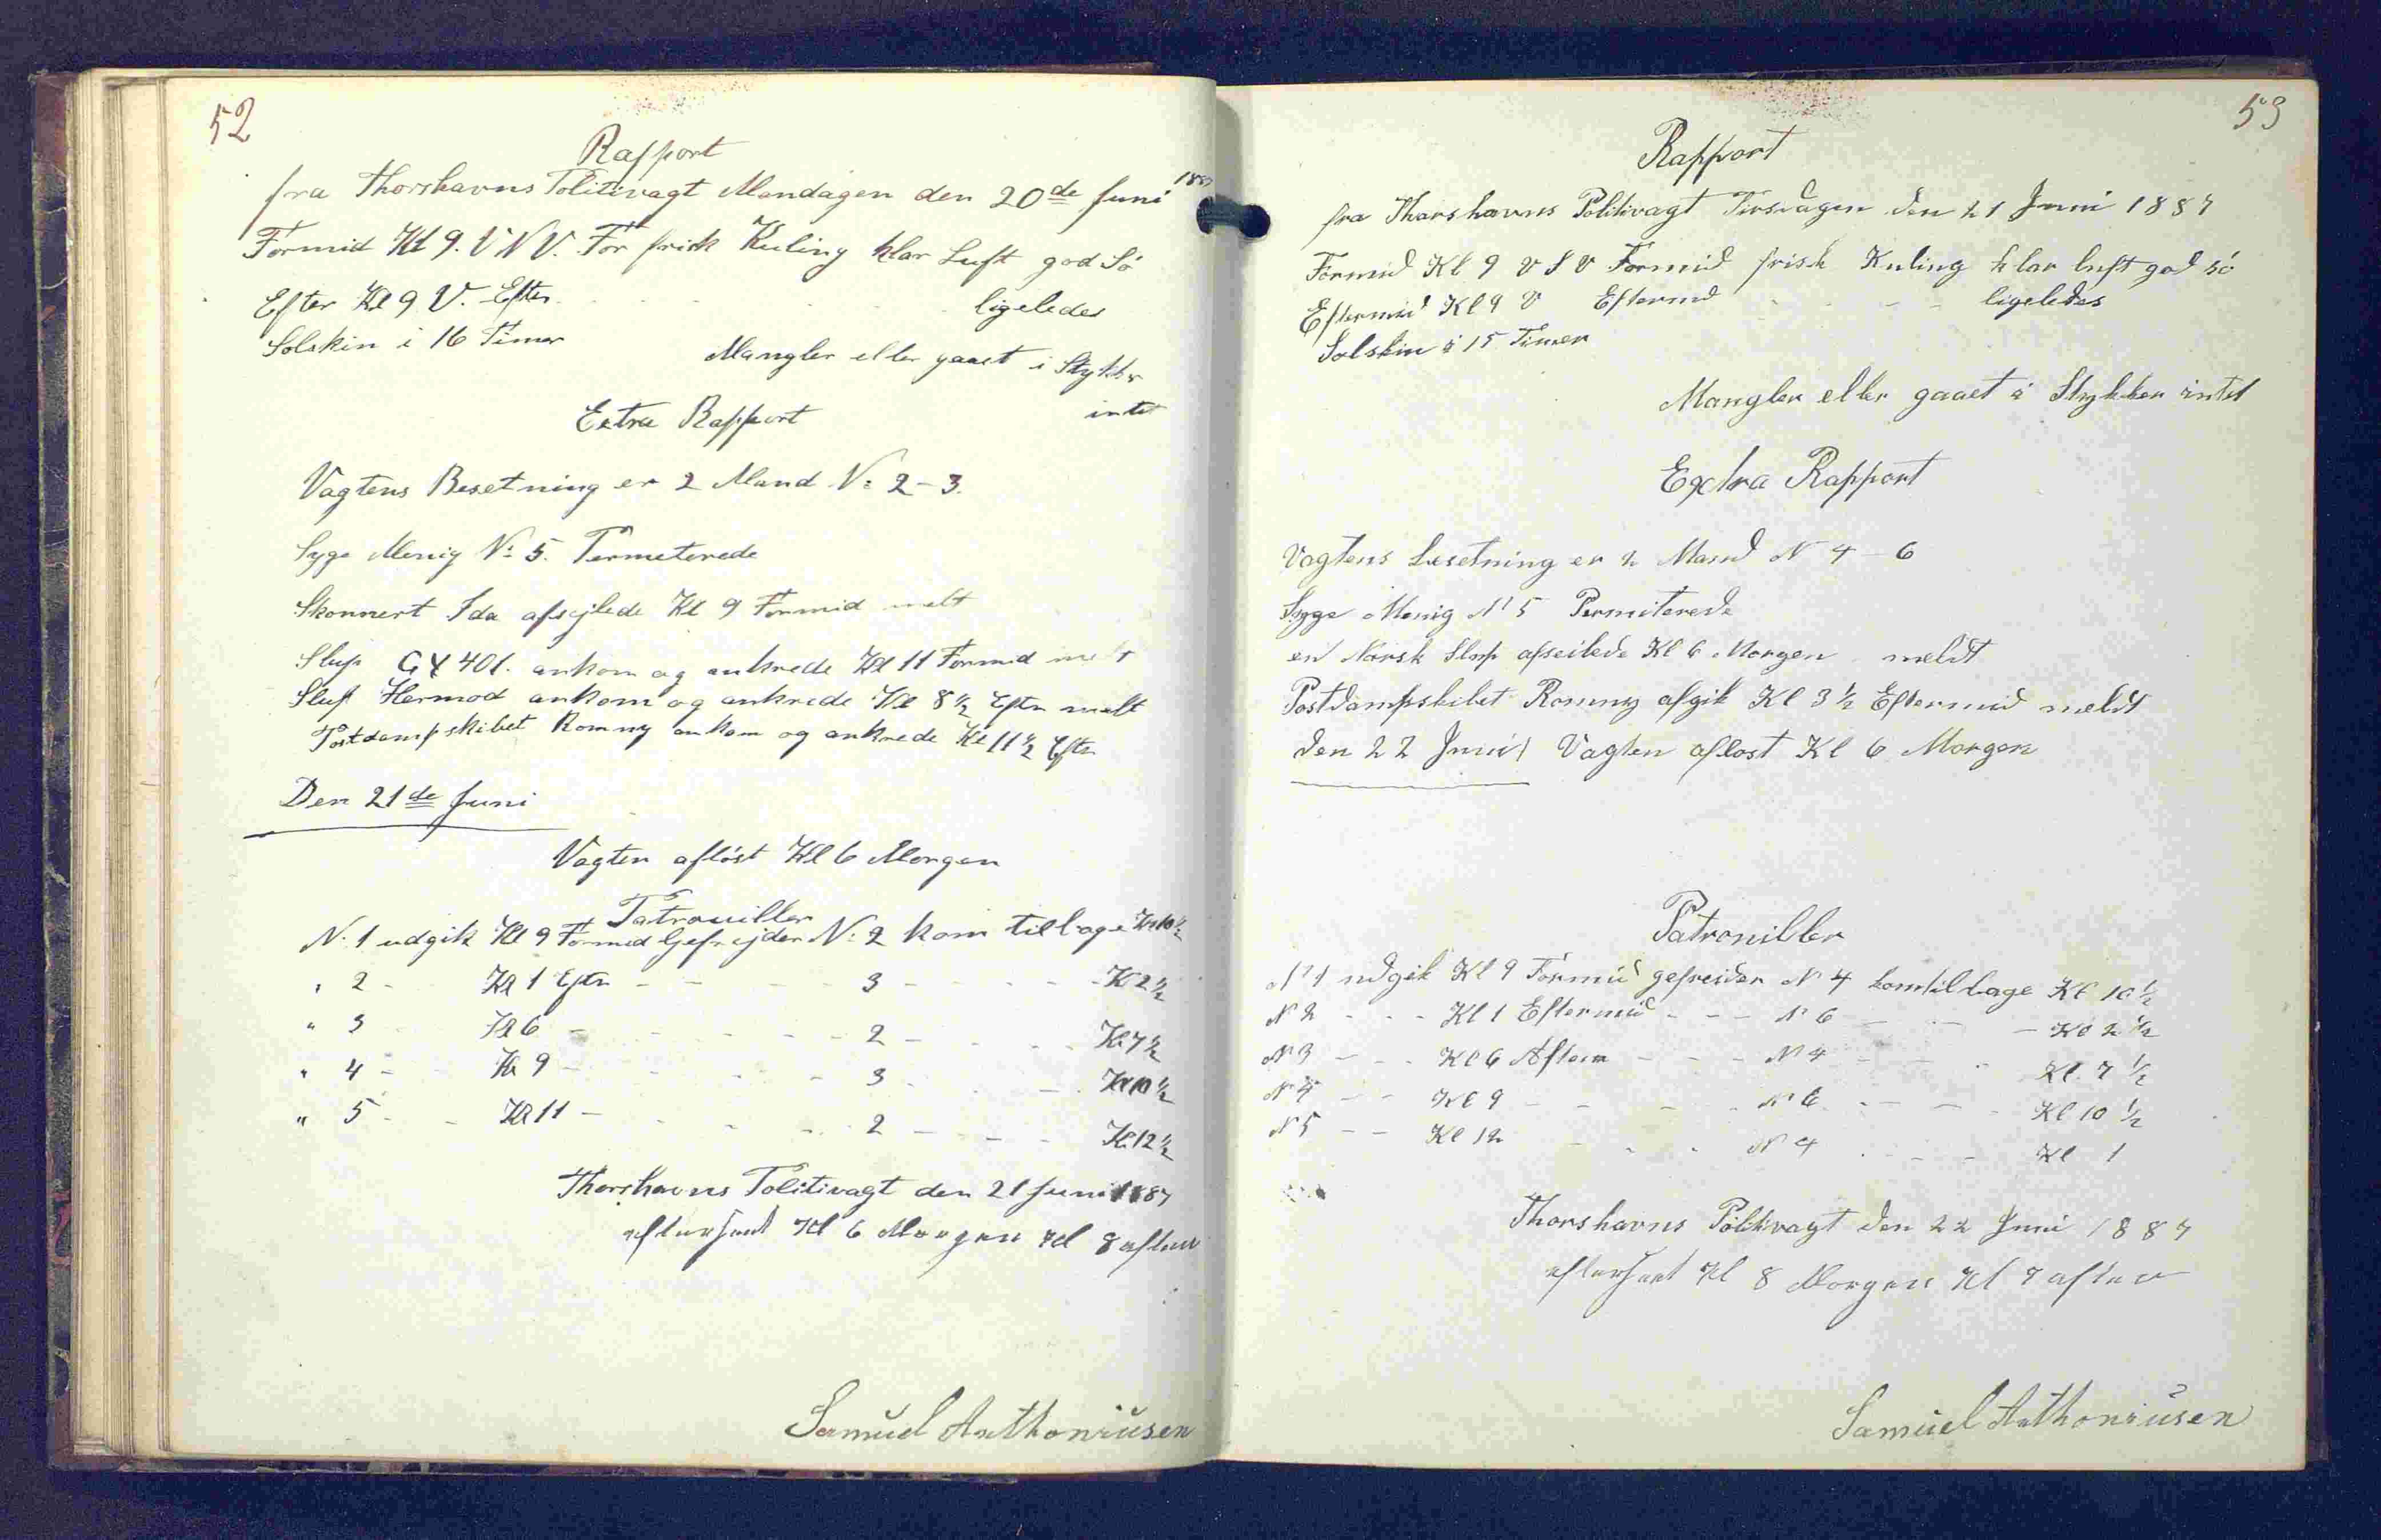 52
Rapport
fra Thorshavns Politivagt Mandagen den 20de Juni 1887
Formid Kl 9. V N V. For frisk Kuling klar Luft god Sö
Efter Kl 9 V. Efter - - - - ligeledes
Solskin i 16 Timer
Mangler eller gaaet i Stykker
intet
Extra Rapport
Vagtens Besetning er 2 Mand No 2-3.
Syge Menig No 5. Permeterede
Skonnert Ida afsejlede Kl 9 Formid melt
Slup GX 401. ankom og ankrede Kl 11 Formid melt
Slup Hermod ankom og ankrede Kl 8½ Eftr melt
Postdampskibet Romny ankom og ankrede Kl 11½ Eftr
Den 21de Juni
Vagten aflöst Kl 6 Morgen
Patrouiller
N. 1 udgik Kl 9 Formid Gefrejder No 2 kom tilbage Kl 10½
" 2 - Kl 1 Eftr - - - - 3 - - - - Kl 2½
" 3 - Kl 6 - - - - 2 - - - - Kl 7½
" 4 - - Kl 9 - - - - 3 - - - - Kl 10½
" 5 - - Kl 11 - - - - 2 - - - - Kl 12½
Thorshavns Politivagt den 21 Juni 1887
efterseet Kl 6 Morgen Kl 8 aften
Samuel Anthoniusen
53
Rapport
fra Thorshavns Politivagt Tirsdagen den 21 Juni 1887
Formid Kl 9 V S V Formid frisk Kuling klar luft god sö
Eftermid Kl 9 V Eftermd - - - - ligeledes
Solskin i 15 Timer
Mangler eller gaaet i Stykker intet
Extra Rapport
Vagtens besetning er 2 Mand N 4 - 6
Syge Menig No 5 Permiterede
en Norsk Slup afseilede Kl 6 Morgen meldt
Postdampskibet Romny afgik Kl 3½ Eftermid meldt
den 22 Juni Vagten aflost Kl 6 Morgen
Patrouiller
No 1 udgik Kl 9 Formid gefreider No 4 kom tilbage Kl 10½
No 2 - - - Kl 1 Eftermid - - - No 6 - - - Kl 2½
No 3 - - - Kl 6 Aften - - - No 4 - - - Kl. 7½
No 4 - - Kl 9 - - - No 6 - - - Kl 10½
No 5 - - Kl 12 - - - No 4 - - - Kl 1
Thorshavns Politivagt den 22 Juni 1887
efterseet Kl 8 Morgen Kl 7 aften
Samuel Anthoniusen